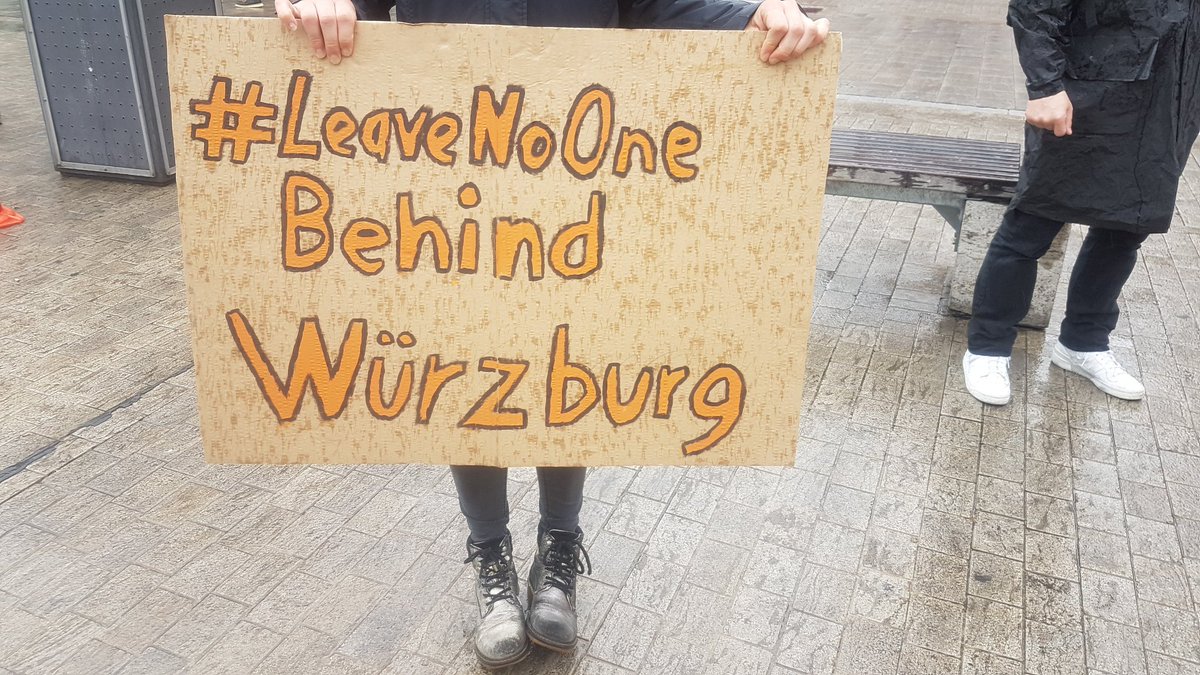 #LeaveNoOne
Behind
Würzburg